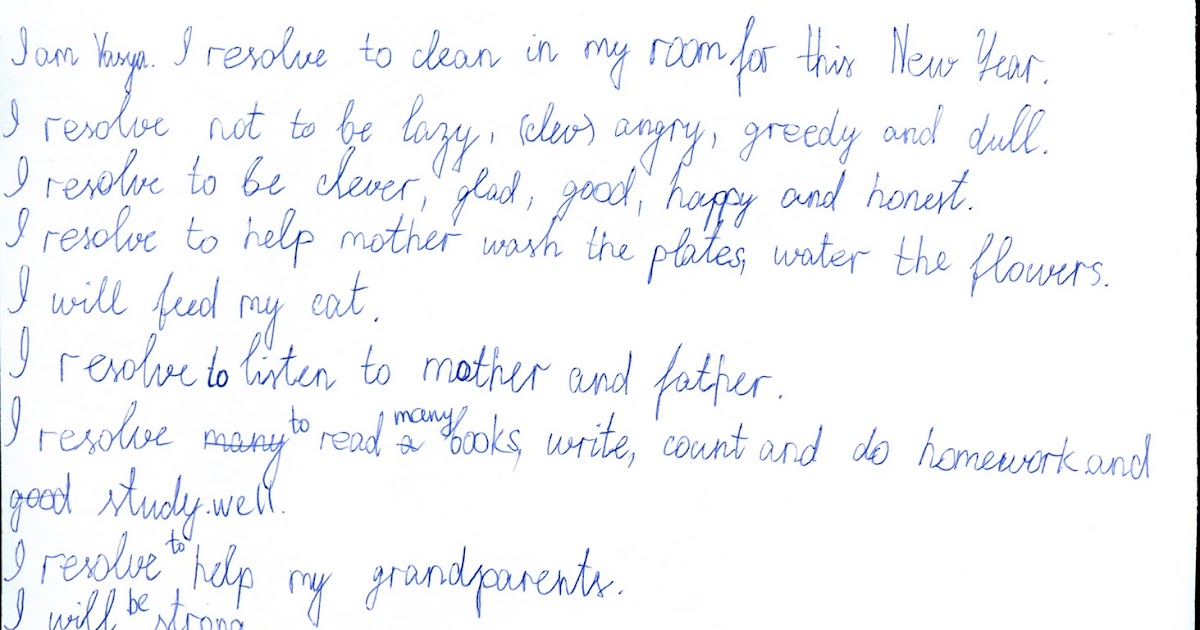 I am Vasya. I resolve to clean in my room for this New Year.
I resolve not to be lazy, (clev) angry, greedy and dull.
I resolve to be clever, glad, good, happy and honest.
I resolve to help mother wash the plates, water the flowers.
I will feed my cat.
I resolve to listen to mother and father.
I resolve many to read a many books, write, count and do homework and
good study well.
I resolve to help my grandparents.
I will be strong